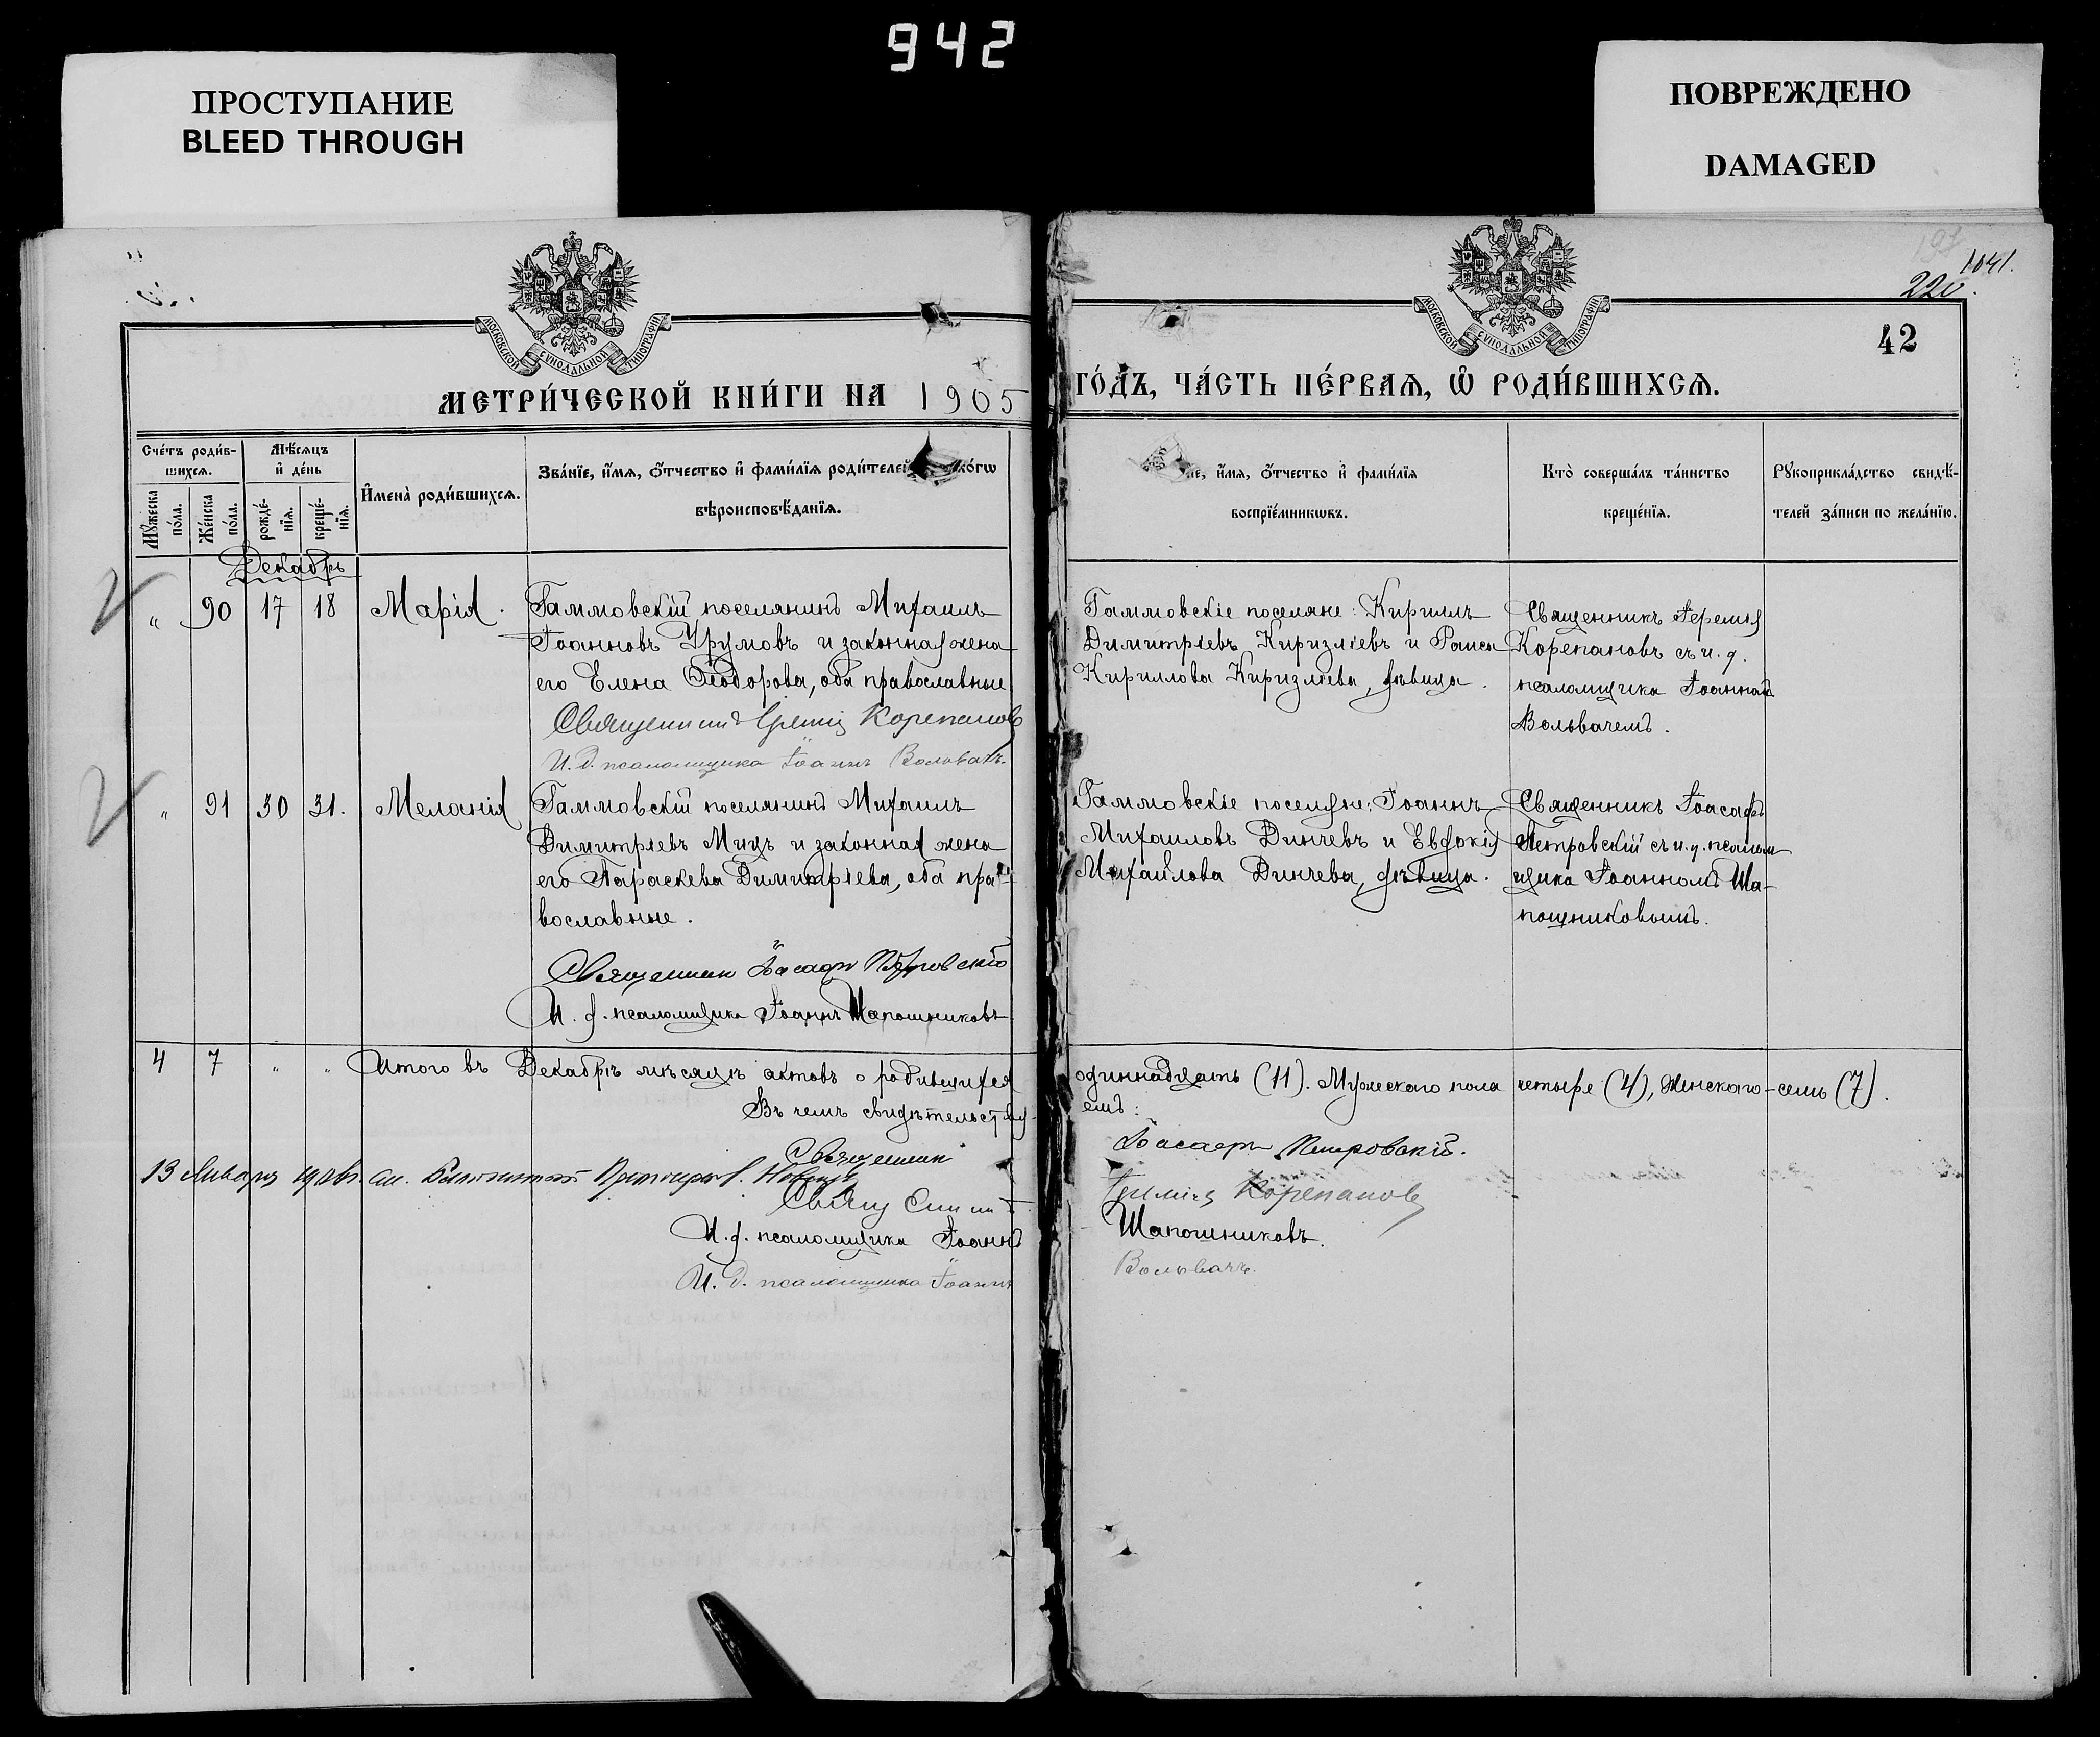 942
ПРОСТУПАНИЕ
BLEED THROUGH
ПОВРЕЖДЕНО
DAMAGED
1041.
220.
42
МОСКОВСКОЙ СѴНОДАЛЬНОЙ ТИПОГРАФІИ
МОСКОВСКОЙ СѴНОДАЛЬНОЙ ТИПОГРАФІИ
МЕТРИ́ЧЕСКОЙ КНИ́ГИ НА 1905
ГО́ДЪ, ЧА́СТЬ ПЕ́РВАѦ, Ѡ҆ РОДИ́ВШИХСѦ.
Сче́тъ роди́в-
шихсѧ.
Мꙋ́жеска по́ла.
Же́нска по́ла.
Мѣ́сѧцъ
и҆ де́нь
рожде́-
нїѧ.
креще́-
нїѧ.
И҆мена̀ роди́вшихсѧ.
Зва́нїе, и҆́мѧ, ѻ҆́тчество и҆ фами́лїѧ роди́телей
ко́гѡ
вѣроисповѣ́данїѧ.
и҆́мѧ, ѻ҆́тчество и҆ фами́лїѧ
воспрїе́мникѡвъ.
Кто̀ соверша́лъ та́инство
креще́нїѧ.
Рꙋкоприкла́дство свидѣ́-
телей за́писи по жела́нїю.
Декабрь
„ 90 17 18 Марія.
Гаммовскій поселянинъ Михаилъ
Іоанновъ Урумовъ и законная жена
его Елена Ѳеодорова, оба православные
Священникъ Іеремія Корепановъ
И. д. псаломщика Іоаннъ Вольвачъ.
Гаммовскіе поселяне: Кириллъ
Димитріевъ Киризліевъ и Раиса
Кириллова Киризліева, дѣвица.
Священникъ Іеремія
Корепановъ съ и. д.
псаломщика Іоанномъ
Вольвачемъ.
„ 91 30 31. Меланія
Гаммовскій поселянинъ Михаилъ
Димитріевъ Мицъ и законная жена
его Параскева Димитріева, оба пра-
вославные.
Священник Іоасафъ Петровскій
И. д. псаломщика Іоаннъ Шапошниковъ
Гаммовскіе поселяне: Іоаннъ
Михаиловъ Динчевъ и Евдокія
Михайлова Динчева, дѣвица.
Священникъ Іоасафъ
Петровскій съ и. д. псалом
щика Іоанномъ Ша-
пошниковымъ.
4 7 „ „ Итого въ Декабрѣ мѣсяцѣ актовъ о родившихся
одиннадцать (11). Мужескаго пола четыре (4), женскаго-семь (7).
Въ чемъ свидѣтельству-
емъ:
Священник
Іоасафъ Петровскій.
13 Января
Священникъ
Іеремія Корепановъ
И. д. псаломщика Іоаннъ
Шапошниковъ.
И. д. псаломщика Іоаннъ
Вольвачъ.